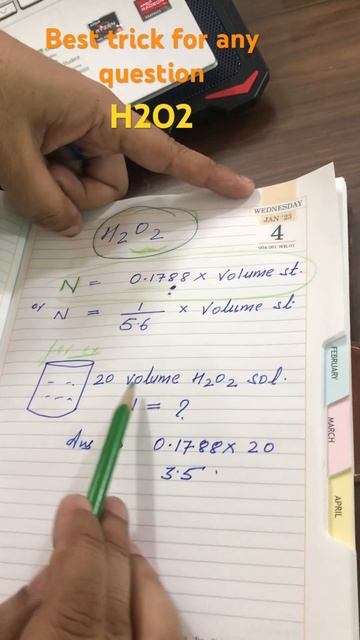 Best trick for any
question
H2O2
WEDNESDAY
JAN '23
4
004-361 WK-01
H2O2
N = 0.1788 × Volume st.
or N = 1/5.6 × Volume st
20 volume H2O2 sol.
= ?
Ans 0.1788 × 20
3.5
FEBRUARY
MARCH
APRIL